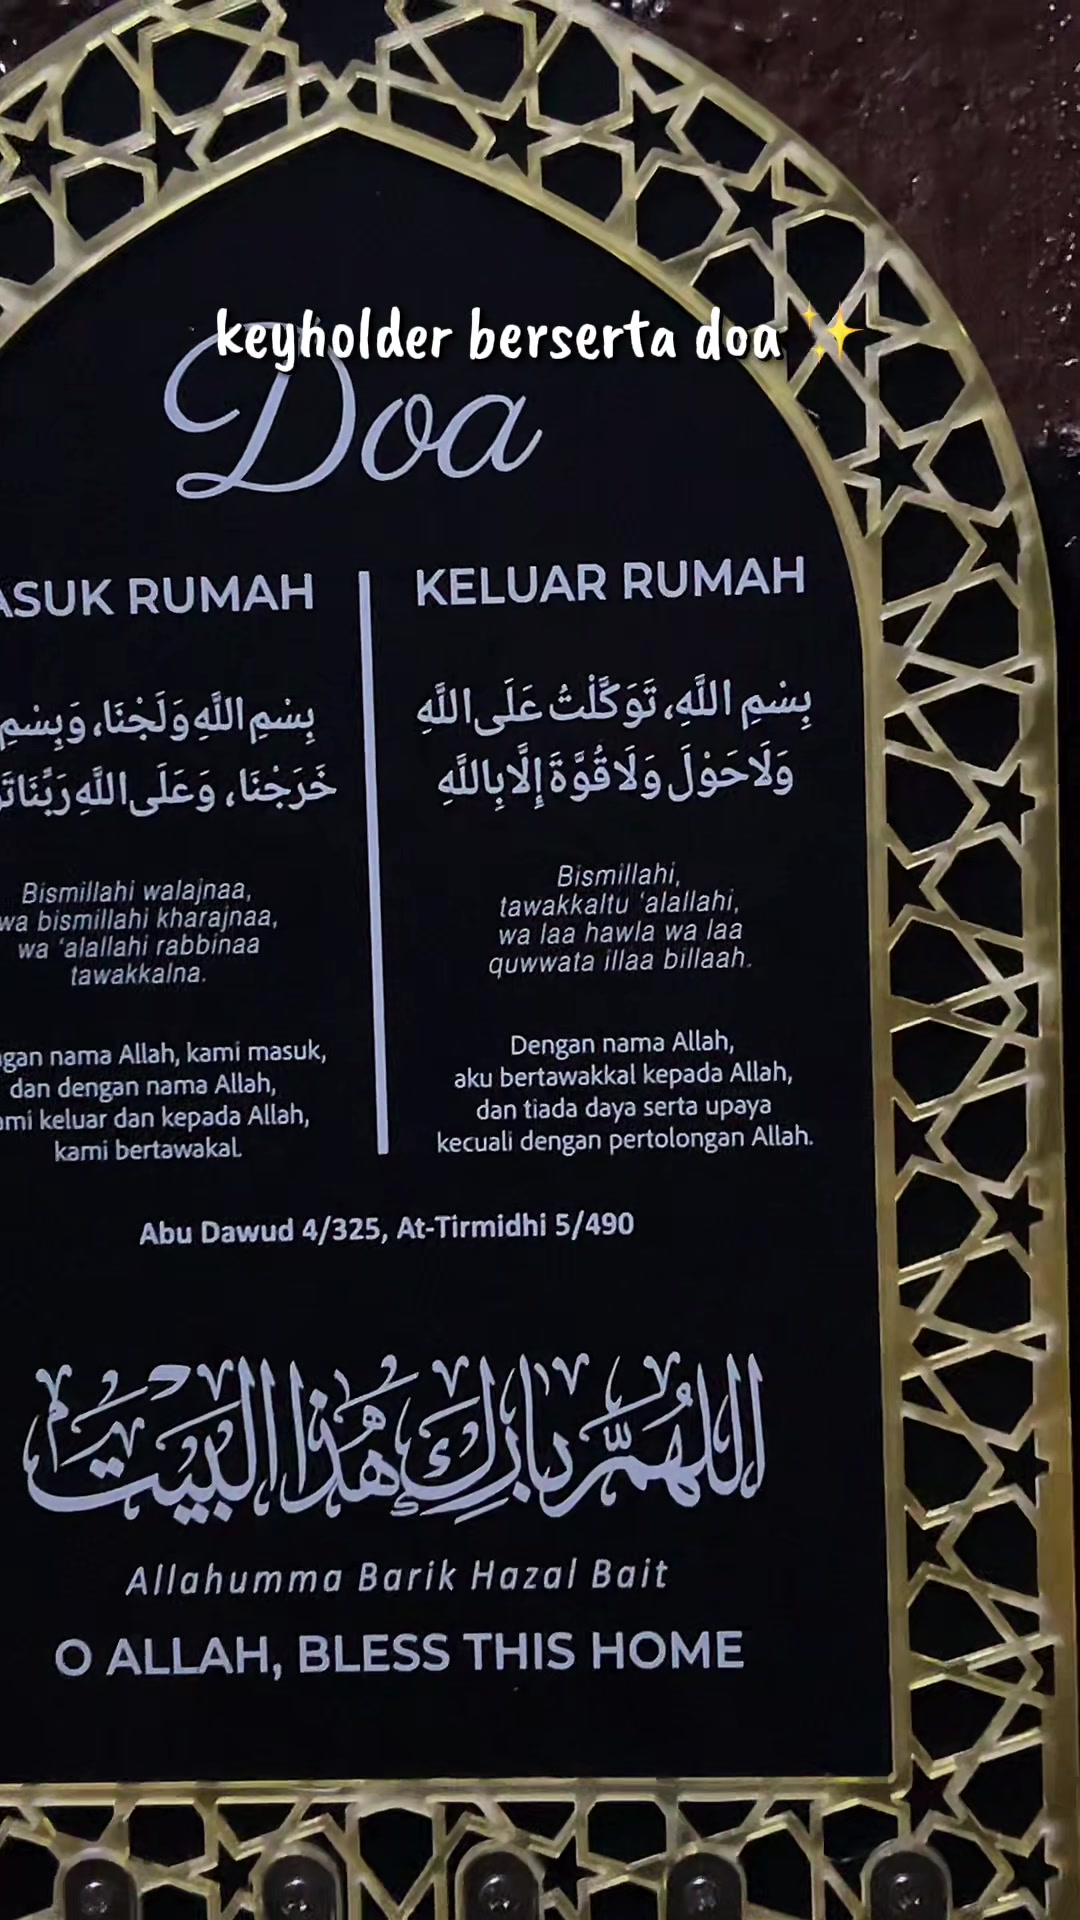 keyholder berserta doa ✨
Doa
ASUK RUMAH
بِسْمِ اللَّهِ وَلَجْنَا، وَبِسْمِ
خَرَجْنَا، وَعَلَى اللَّهِ رَبِّنَا
Bismillahi walajnaa,
wa bismillahi kharajnaa,
wa ‘alallahi rabbinaa
tawakkalna.
ngan nama Allah, kami masuk,
dan dengan nama Allah,
ami keluar dan kepada Allah,
kami bertawakal.
KELUAR RUMAH
بِسْمِ اللَّهِ، تَوَكَّلْتُ عَلَى اللَّهِ
وَلَا حَوْلَ وَلَا قُوَّةَ إِلَّا بِاللَّهِ
Bismillahi,
tawakkaltu ‘alallahi,
wa laa hawla wa laa
quwwata illaa billaah.
Dengan nama Allah,
aku bertawakkal kepada Allah,
dan tiada daya serta upaya
kecuali dengan pertolongan Allah.
Abu Dawud 4/325, At-Tirmidhi 5/490
اللهُمَّ بَارِكْ هٰذَا الْبَيْتَ
Allahumma Barik Hazal Bait
O ALLAH, BLESS THIS HOME